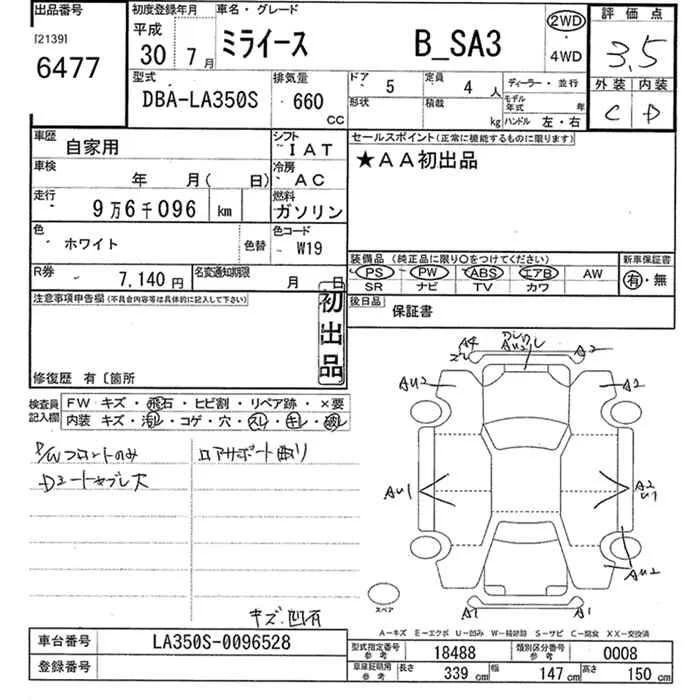 出品番号
[2139]
6477
初度登録年月
平成
30年 7月
車名・グレード
ミライース B_SA3
2WD
・
4WD
評価点
3.5
外装 内装
C D
型式
DBA-LA350S
排気量
660
CC
ドア 5
形状
定員 4人
積載 kg
ディーラー・並行
モデル年式 年
ハンドル 左・右
車歴 自家用
シフト IAT
車検 年 月( 日)
冷房 AC
走行 9万6千096 km
燃料 ガソリン
色 ホワイト 色替
色コード W19
R券 7,140円
名変通知期限 月 日
セールスポイント(正常に機能するものに限ります)
★AA初出品
装備品(純正品に限り○をつけてください)
PS PW ABS エアB AW
SR ナビ TV カワ
新車保証書
有・無
後日品 保証書
注意事項申告欄(不具合内容等は具体的に記入して下さい)
初出品
修復歴 有〔箇所
検査員記入欄
FW キズ・飛石・ヒビ割・リペア跡・×要
内装 キズ・汚レ・コゲ・穴・スレ・キレ・破レ
P/Wフロントのみ
リアサポート曲り
キズ.凹有
A4
A2
AU2
A2
AU1
A2
U1
AU2
A1
A1
スペア
A-キズ E-エクボ U-凹み W-補修跡 S-サビ C-腐食 XX-交換済
車台番号 LA350S-0096528
登録番号
型式指定番号 参考 18488
類別区分番号 参考 0008
車庫証明用 参考 長さ 339cm 幅 147cm 高さ 150cm